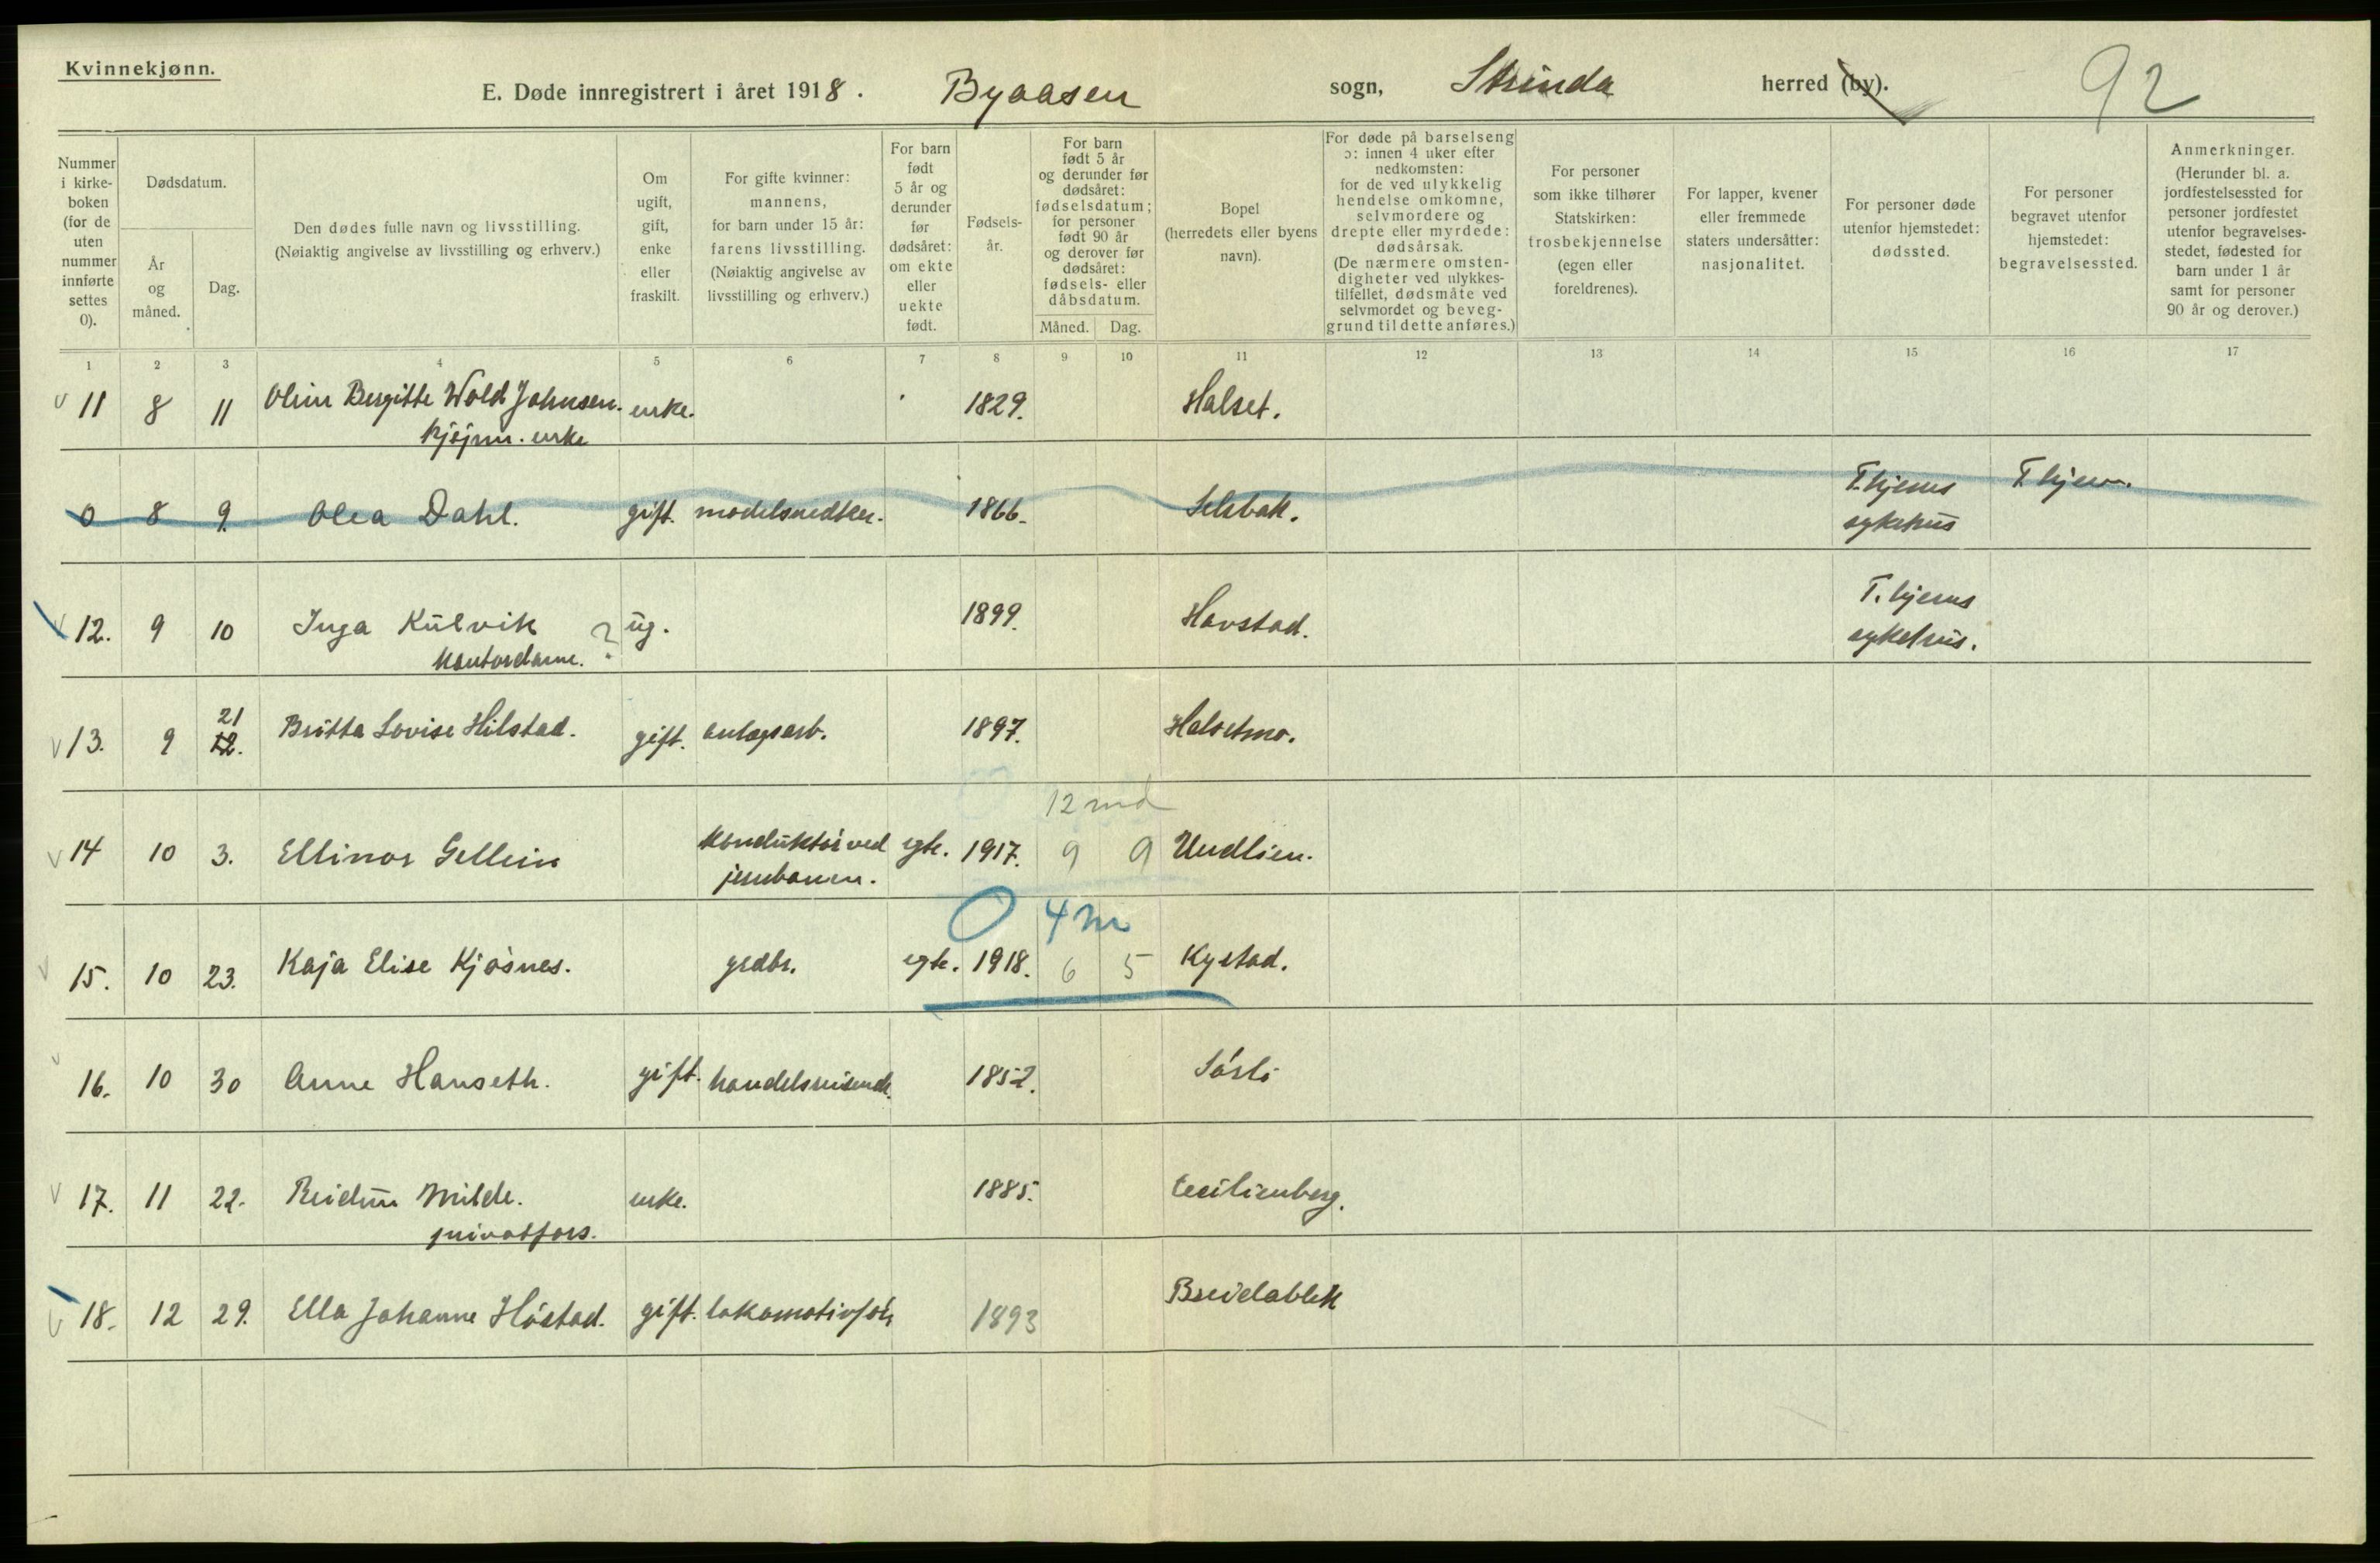 Kvinnekjønn.
E. Døde innregistrert i året 1918. Byaasen sogn, Strinda herred (by). 92
Nummer i kirke- boken (for de uten nummer innførte settes 0).
Dødsdatum.
År og måned.
Dag.
Den dødes fulle navn og livsstilling. (Nøiaktig angivelse av livsstilling og erhverv.)
Om ugift, gift, enke eller fraskilt.
For gifte kvinner: mannens, for barn under 15 år: farens livsstilling. (Nøiaktig angivelse av livsstilling og erhverv.)
For barn født 5 år og derunder før dødsåret: om ekte eller uekte født.
Fødsels- år.
For barn født 5 år og derunder før dødsåret: fødselsdatum; for personer født 90 år og derover før dødsåret: fødsels- eller dåbsdatum.
Måned. Dag.
Bopel (herredets eller byens navn).
For døde på barselseng ɔ: innen 4 uker efter nedkomsten: for de ved ulykkelig hendelse omkomne, selvmordere og drepte eller myrdede: dødsårsak. (De nærmere omsten- digheter ved ulykkes- tilfellet, dødsmåte ved selvmordet og beveg- grund til dette anføres.)
For personer som ikke tilhører Statskirken: trosbekjennelse (egen eller foreldrenes).
For lapper, kvener eller fremmede staters undersåtter: nasjonalitet.
For personer døde utenfor hjemstedet: dødssted.
For personer begravet utenfor hjemstedet: begravelsessted.
Anmerkninger. (Herunder bl. a. jordfestelsessted for personer jordfestet utenfor begravelses- stedet, fødested for barn under 1 år samt for personer 90 år og derover.)
1 2 3 4 5 6 7 8 9 10 11 12 13 14 15 16 17
v 11 8 11 Oline Bergitte Wold Johnsen. enke. 1829. Halset.
kjøjnm. enke
0 8 9. Olea Dahl. gift. modelsnedker. 1866. Selsbak. T.hjems T.hjem.
sykehus
v 12. 9 10 Inga Kulvik ? ug. 1899. Havstad. T. hjems
kontordame. sykehus.
21
v 13. 9 12. Britta Lovise Hilstad. gift. anlagsarb. 1897. Halsetmo.
12 md
v 14 10 3. Ellinor Gellein konduktør ved egte. 1917. 9 9 Undlien.
jernbanen.
0 4 m
v 15. 10 23. Kaja Elise Kjøsnes. grdbr. egte. 1918. 6 5 Kystad.
v 16. 10 30 Anne Hanseth. gift. handelsreisende. 1852. Sørli
v 17. 11 22. Reidun Milde. enke. 1885. Cecilienberg.
privatfors.
v 18. 12 29. Ella Johanne Høstad. gift. lokomotivfør 1893 Breidablik